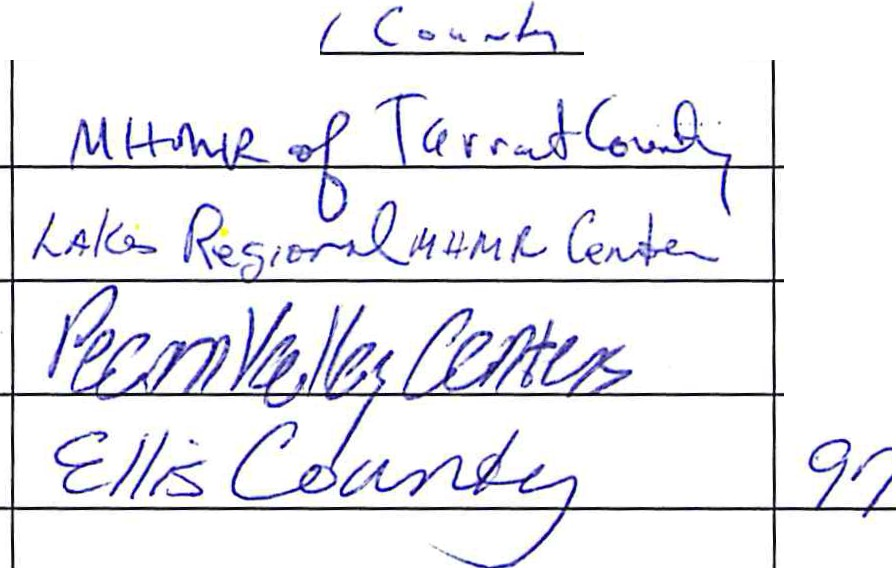 County
MHMR of Tarrant County
LAKes Regional MHMR Center
Pecan Valley Centers
Ellis County 97